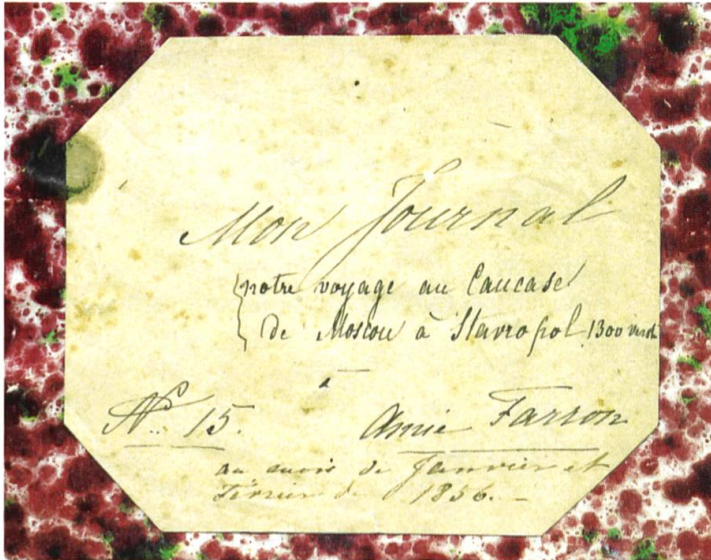 Mon Journal
notre voyage au Caucase
de Moscou à Stavropol 1300 verst
à
No 15. Amie Farron
au mois de Janvier et
Février de 1856.